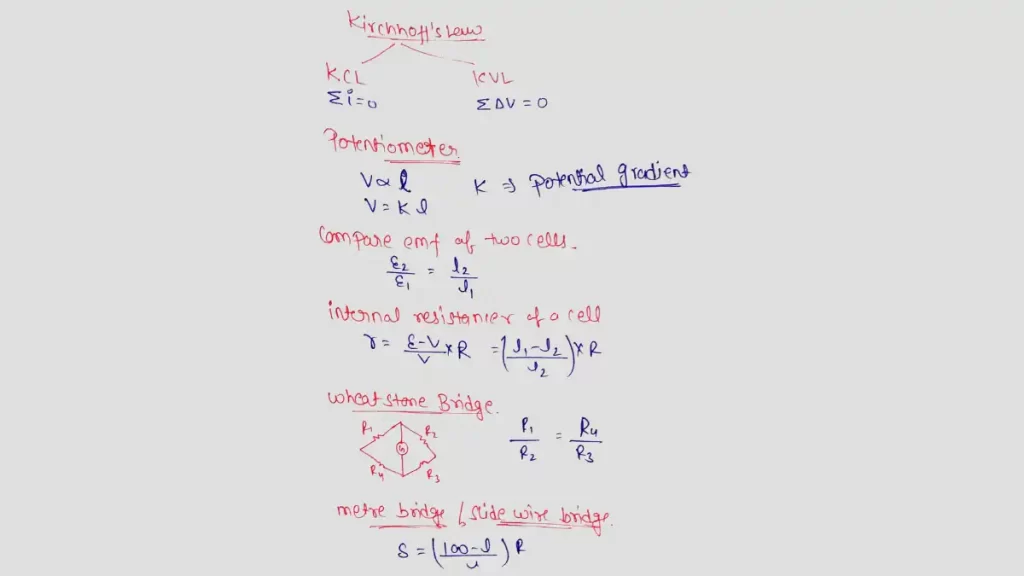 Kirchhoff's Law
KCL KVL
Σi=0 ΣΔV = 0
Potentiometer
V∝ l K ⇒ potential gradient
V = K l
Compare emf of two cells.
ε2/ε1 = l2/l1
internal resistancer of a cell
r = ε-V/V × R = (l1-l2/l2) × R
wheatstone Bridge.
R1 R2 P1/R2 = R4/R3
G
R4 R3
metre bridge / slide wire bridge.
S = (100-l/l) R